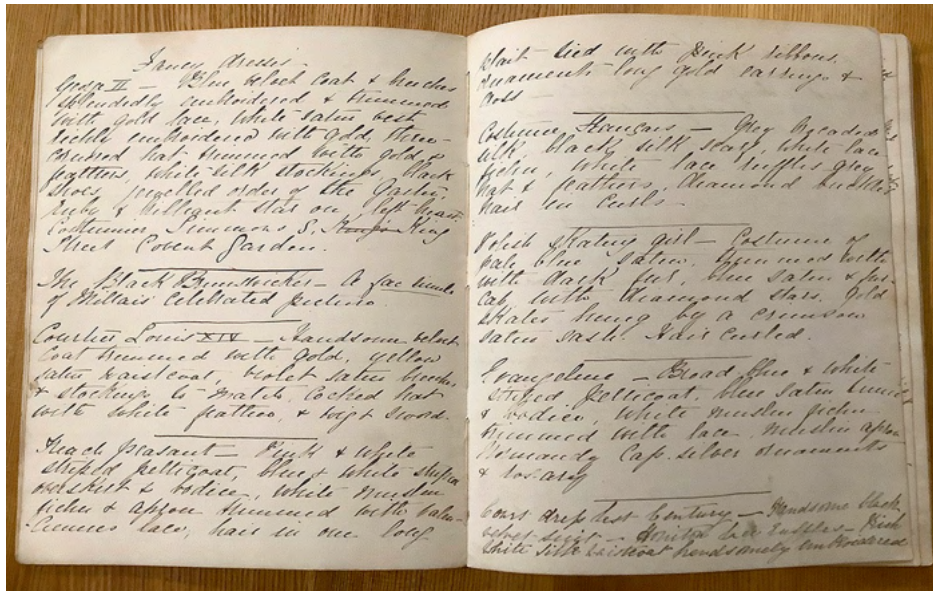 Fancy dresses -
George II - Blue velvet Coat & breeches
splendidly embroidered & trimmed
with gold lace, white satin vest
richly embroidered with gold, three-
cornered hat trimmed with gold &
feathers, white silk stockings, black
shoes, jewelled order of the Garter,
ruby & brilliant star on left breast
Costumier Simmons 8, King
Street Covent Garden.
The Black Brunswicker - A fac simile
of Millais' celebrated picture.
Courtier Louis XIV - Handsome velvet
Coat trimmed with gold, yellow
satin waistcoat, violet satin breeches
& stockings to match, Cocked hat
with white feather, & wig & sword.
French Peasant - Pink & white
striped petticoat, blue & white striped
overskirt & bodice, white muslin
fichu & apron trimmed with Valen-
ciennes lace, hair in one long
plait tied with pink ribbons.
ornaments long gold earrings &
cross -
Costume Français - Grey brocaded
silk, black silk scarf, white lace
fichu, white lace ruffles grey
hat & feathers, diamond buckles
hair in curls -
Polish skating girl - Costume of
pale blue satin, trimmed with
with dark fur, blue satin & fur
cap, with diamond stars, gold
skates hung by a crimson
satin sash. Hair curled.
Evangeline - Broad blue & white
striped petticoat, blue satin tunic
& bodice, white muslin fichu
trimmed with lace, muslin apron
Normandy Cap. silver ornaments
& rosary
Court dress last Century - Handsome black
velvet suit - Honiton lace ruffles -
white silk waistcoat handsomely embroidered